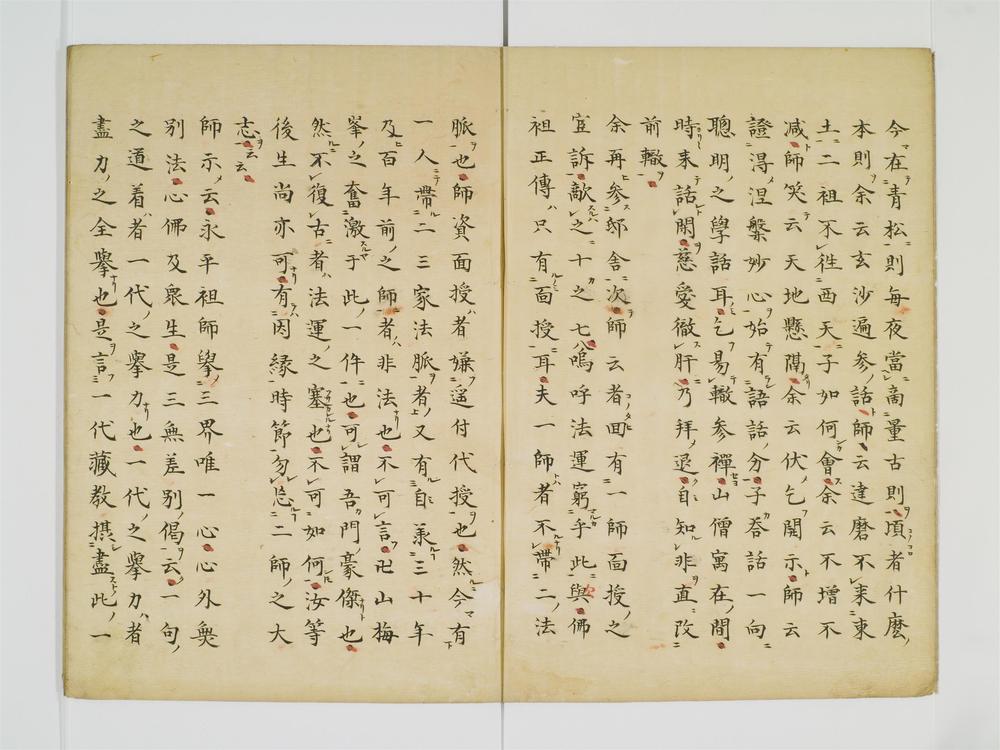 今在青松則毎夜當商量古則頃者什麼
本則余云玄沙遍参話師云達磨不来東
土二祖不徃西天子如何會余云不増不
減師笑云天地懸隔余云伏乞開示師云
證得涅槃妙心始有語話分子荅話一向
聰明之學話耳乞易轍参禪山僧寓在間
時来話閑慈愛徹肝乃拜退自知非直改
前轍
余再参邸舎次師云者囬有一師面授之
宦訴敵之十之七八嗚呼法運窮乎此與佛
祖正傳只有面授耳夫一師者不帶二法
脈也師資面授者嫌遥付代授也然今有
一人帶二三家法脈者又有自兼三十年
及百年前之師者非法也不可言卍山梅
峯之奮激于此一件也可謂吾門豪傑也
然不復古者法運之塞也不可如何汝等
後生尚亦可有因縁時節勿忘二師之大
志云云
師示云永平祖師擧三界唯一心心外無
别法心佛及衆生是三無差别偈云一句
之道着者一代之擧力也一代之擧力者
盡力之全擧也是言一代藏教摂盡此一